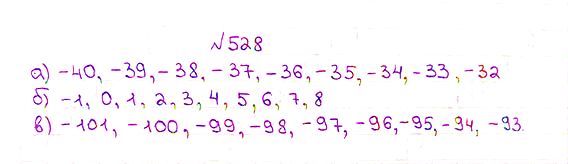 №528
а) -40, -39, -38, -37, -36, -35, -34, -33, -32
б) -1, 0, 1, 2, 3, 4, 5, 6, 7, 8
в) -101, -100, -99, -98, -97, -96, -95, -94, -93